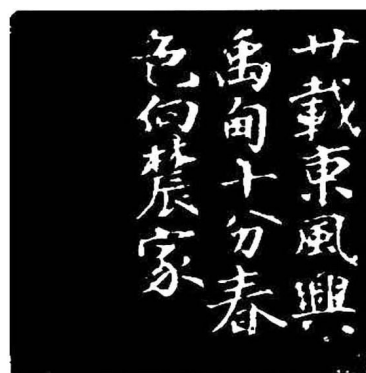 廿載東風興
禹甸十分春
色向農家